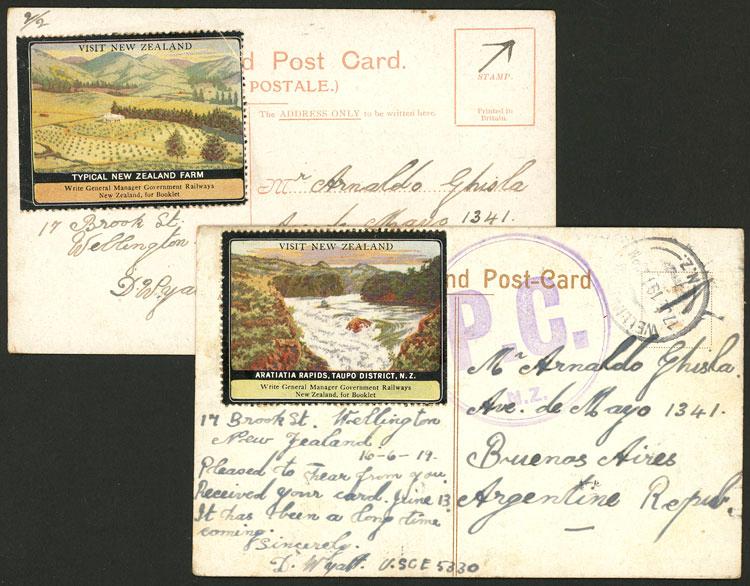 2/2
VISIT NEW ZEALAND
TYPICAL NEW ZEALAND FARM
Write General Manager Government Railways
New Zealand, for Booklet
d Post Card.
POSTALE.)
The ADDRESS ONLY to be written here.
STAMP.
Printed in
Britain.
Mr Arnaldo Ghisla
Av. de Mayo 1341.
17 Brook St.
Wellington
D. Wya
VISIT NEW ZEALAND
ARATIATIA RAPIDS, TAUPO DISTRICT, N.Z.
Write General Manager Government Railways
New Zealand, for Booklet
nd Post-Card
P.C.
N.Z.
N.Z.
Mr Arnaldo Ghisla.
Ave. de Mayo 1341.
Buenos Aires
Argentine Repub.
17 Brook St. Wellington
New Zealand.
16-6-19.
Pleased to hear from you
Received your card. June 13
It has been a long time
coming.
Sincerely.
D. Wyatt. U.SCE 5330